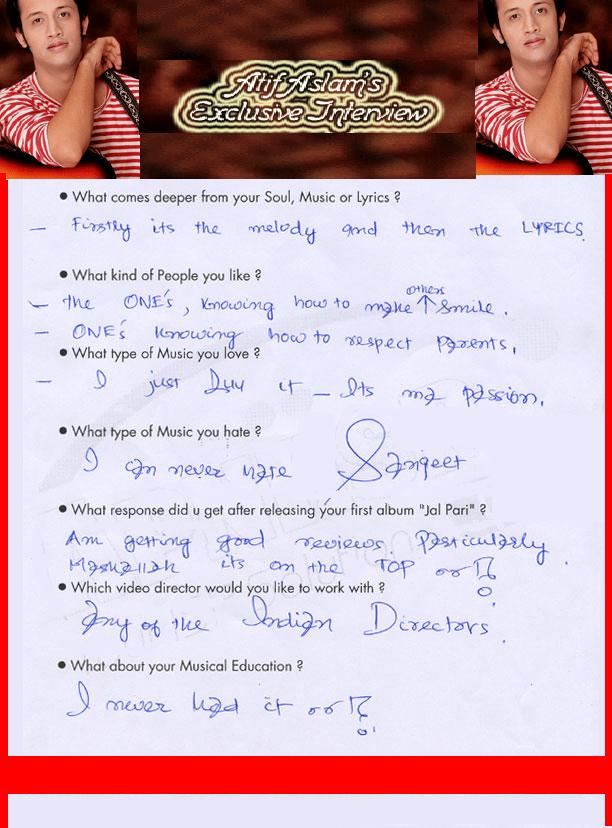 Atif Aslam's
Exclusive Interview
• What comes deeper from your Soul, Music or Lyrics ?
– Firstly its the melody and then the LYRICS.
• What kind of People you like ?
others
– the ONE'S, knowing how to make ↑ smile.
– ONE'S knowing how to respect parents.
• What type of Music you love ?
– I just luv it – Its my passion.
• What type of Music you hate ?
I can never hate Sangeet
• What response did u get after releasing your first album "Jal Pari" ?
Am getting good reviews. Particularly
Mashallah its on the TOP or
• Which video director would you like to work with ?
Any of the Indian Directors.
• What about your Musical Education ?
I never had it or